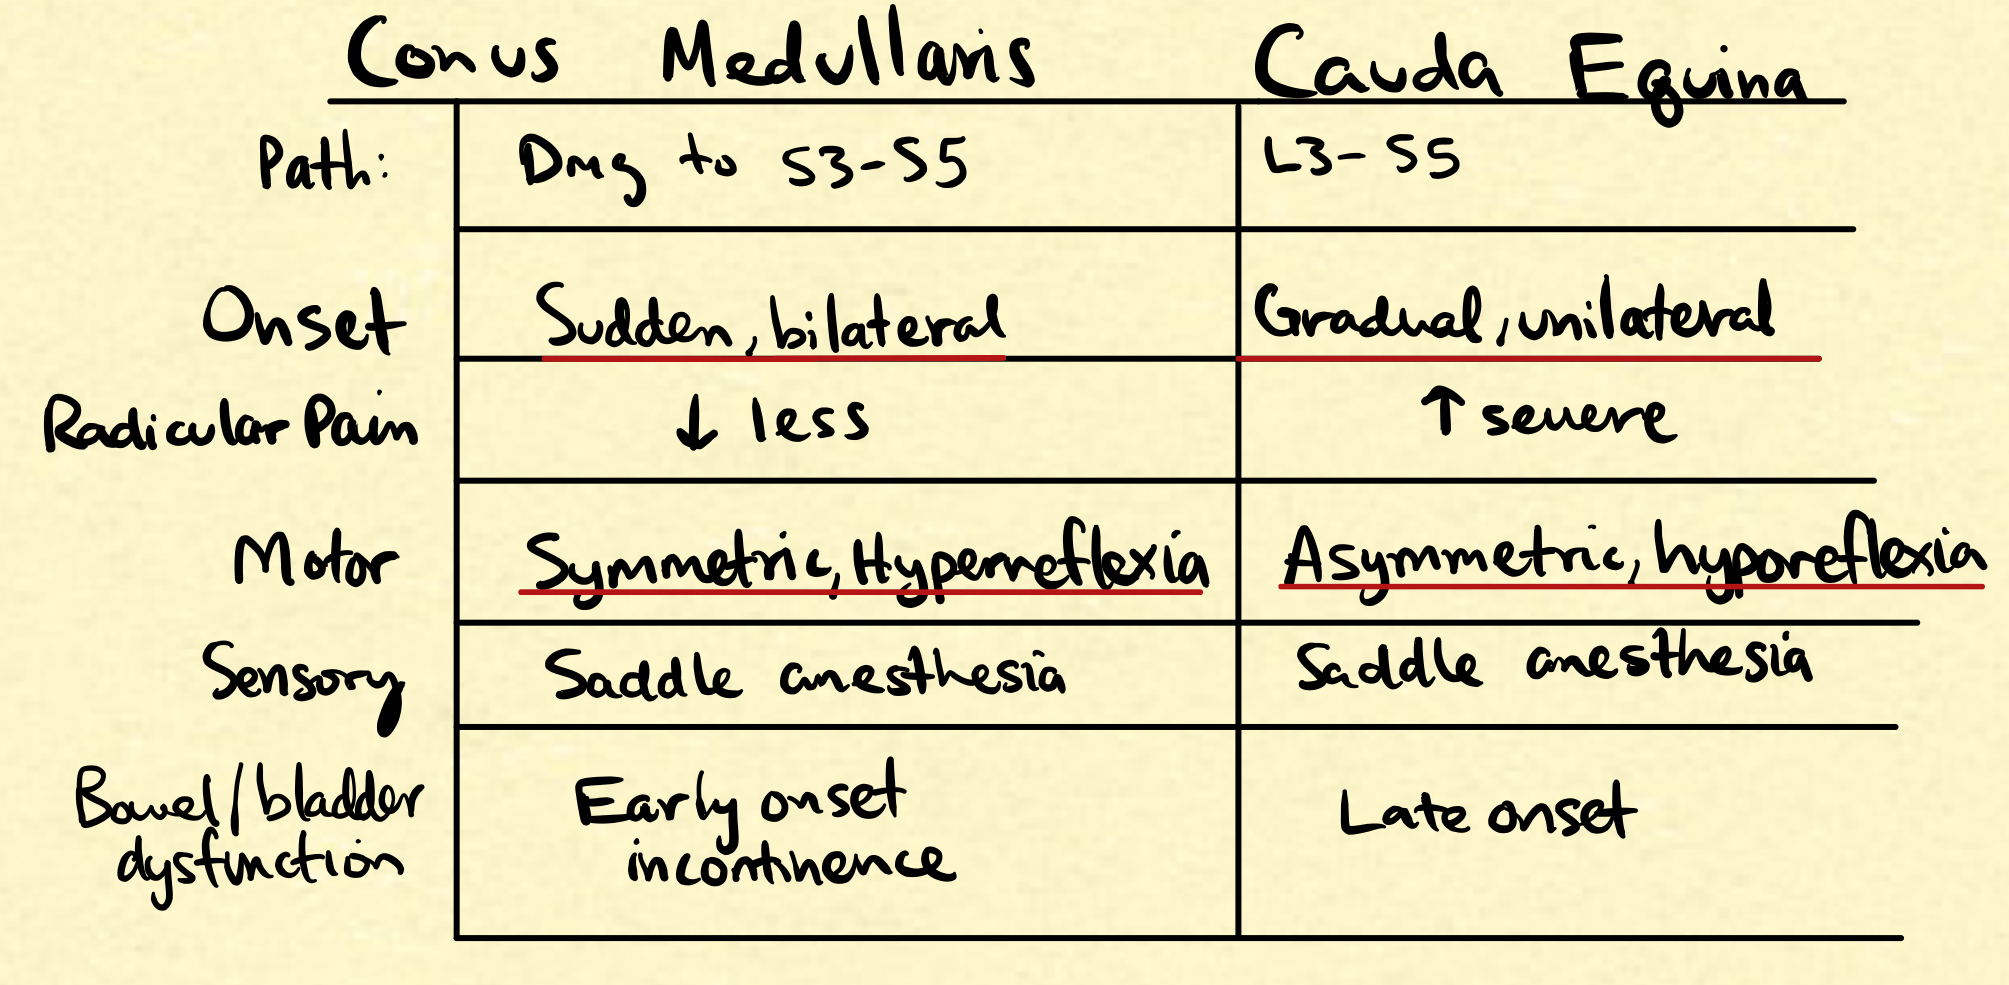 Conus Medullaris Cauda Equina
Path: Dmg to S3-S5 L3-S5
Onset Sudden, bilateral Gradual, unilateral
Radicular Pain ↓ less ↑ severe
Motor Symmetric, Hyperreflexia Asymmetric, hyporeflexia
Sensory Saddle anesthesia Saddle anesthesia
Bowel/bladder Early onset Late onset
dysfunction incontinence